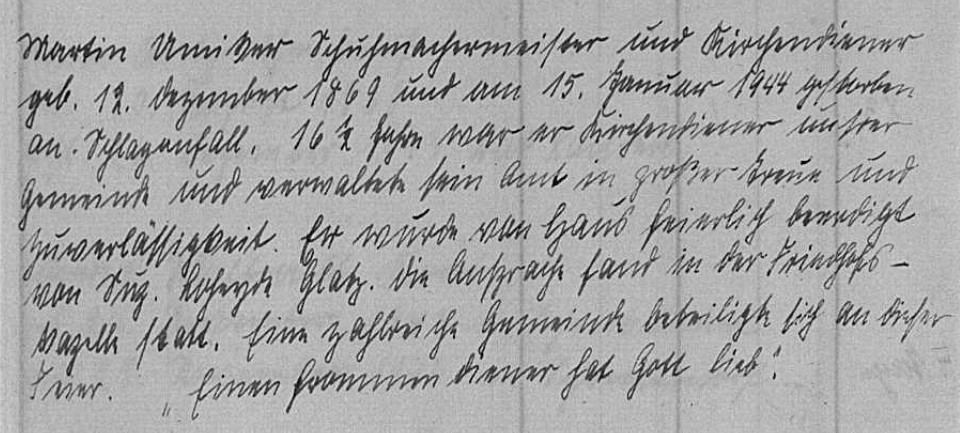 Martin Umiker Schuhmachermeister und Kirchendiener
geb. 12. Dezember 1869 und am 15. Januar 1944 gestorben
an Schlaganfall. 16 ½ Jahre war er Kirchendiener unsrer
Gemeinde und verwaltete sein Amt in großer Treue und
Zuverlässigkeit. Er wurde von Haus feierlich beerdigt
von Sup. Glatz. Die Ansprache fand in der Friedhofs-
kapelle statt. Eine zahlreiche Gemeinde beteiligte sich an dieser
Feier. „Einen frommen Diener hat Gott lieb".